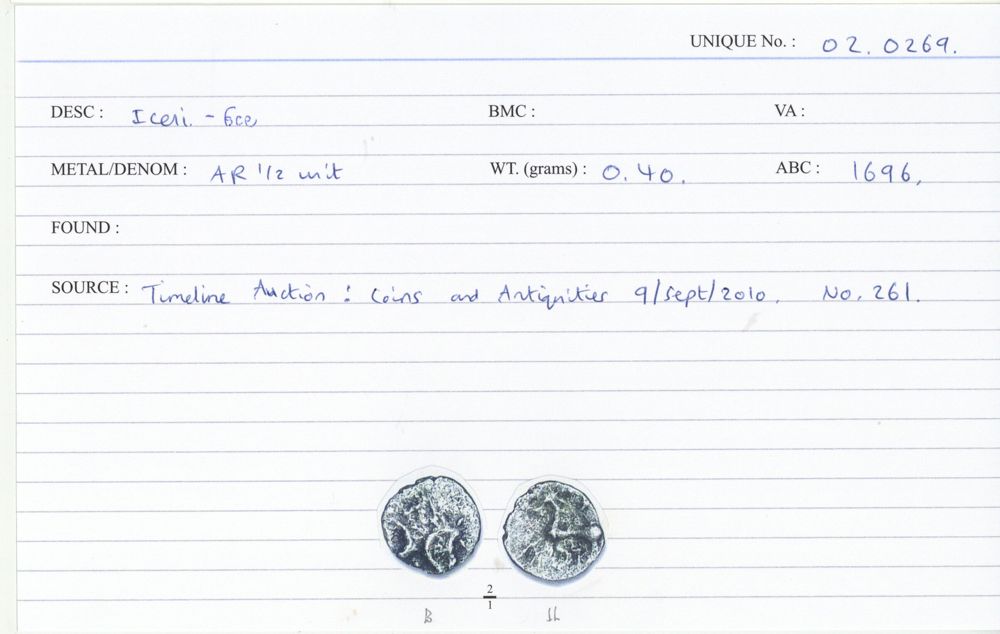 UNIQUE No. : 02.0269.
DESC : Iceni. - Ece BMC : VA :
METAL/DENOM : AR 1/2 unit WT. (grams) : 0.40. ABC : 1696,
FOUND :
SOURCE : Timeline Auction : Coins and Antiquities 9/Sept/2010. No. 261.
2
1
B